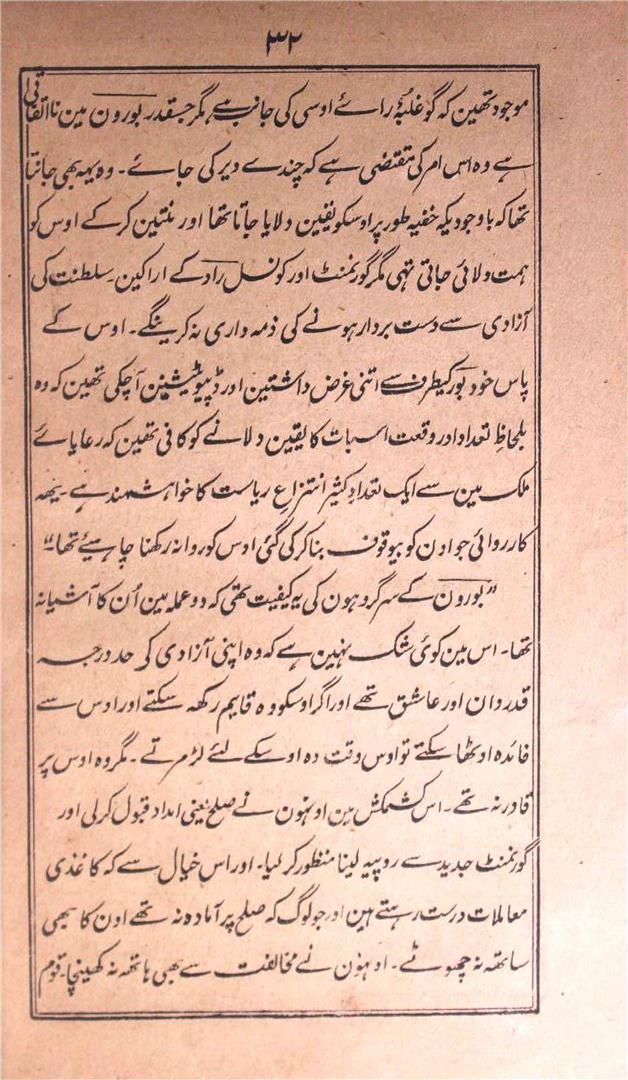 ۳۲
موجود تھین کہ گو غلبۂ رائے اوسی کی جانب ہے مگر جسقدر بورون مین نااتفاقی
ہے وہ اس امر کی متقتضی ہے کہ چندے دیر کی جائے ۔ وہ یہہ بھی جانتا
تھا کہ باوجودیکہ خفیہ طور پر اوسکو یقین دلایا جاتا تھا اور منتین کر کے اوس کو
ہمت دلائی جاتی تہی مگر گورنمنٹ اور کونسل راد کے اراکین ۔ سلطنت کی
آزادی سے دست بردار ہونے کی ذمہ داری نہ کرینگے ۔ اوس کے
پاس خود بور کیطرف سے اتنی عرض داشتین اور ڈپیوٹیشنین آچکی تھین کہ وہ
بلحاظِ تعداد اور وقعت اسبات کا یقین دلانے کو کافی تھین کہ رعایائے
ملک مین سے ایک تعدادِ کثیر انتزاعِ ریاست کا خواہشمند ہے ۔ یہہ
کارروائی جو اون کو بیوقوف بنا کر کی گئی اوس کو روا نہ رکھنا چاہیئے تھا ۔"
"بورون کے سرگروہون کی یہ کیفیت تھی کہ دو عملہ مین اُن کا آشیانہ
تھا ۔ اس مین کوئی شک نہین ہے کہ وہ اپنی آزادی کی حد درجہ
قدردان اور عاشق تھے اور اگر اوسکو وہ قایم رکھہ سکتے اور اوس سے
فائدہ اوٹھا سکتے تو اوس وقت وہ اوسکے لئے لڑ مرتے ۔ مگر وہ اوس پر
قادر نہ تھے ۔ اس کشمکش مین اونہون نے صلح یعنی امداد قبول کر لی اور
گورنمنٹ جدید سے روپیہ لینا منظور کر لیا ۔ اور اس خیال سے کہ کاغذی
معاملات درست رہتے ہین اور جو لوگ کہ صلح پر آمادہ نہ تھے اون کا بھی
ساتھہ نہ چھوٹے ۔ اونہون نے مخالفت سے بھی ہاتھہ نہ کھینچا ۔ قوم